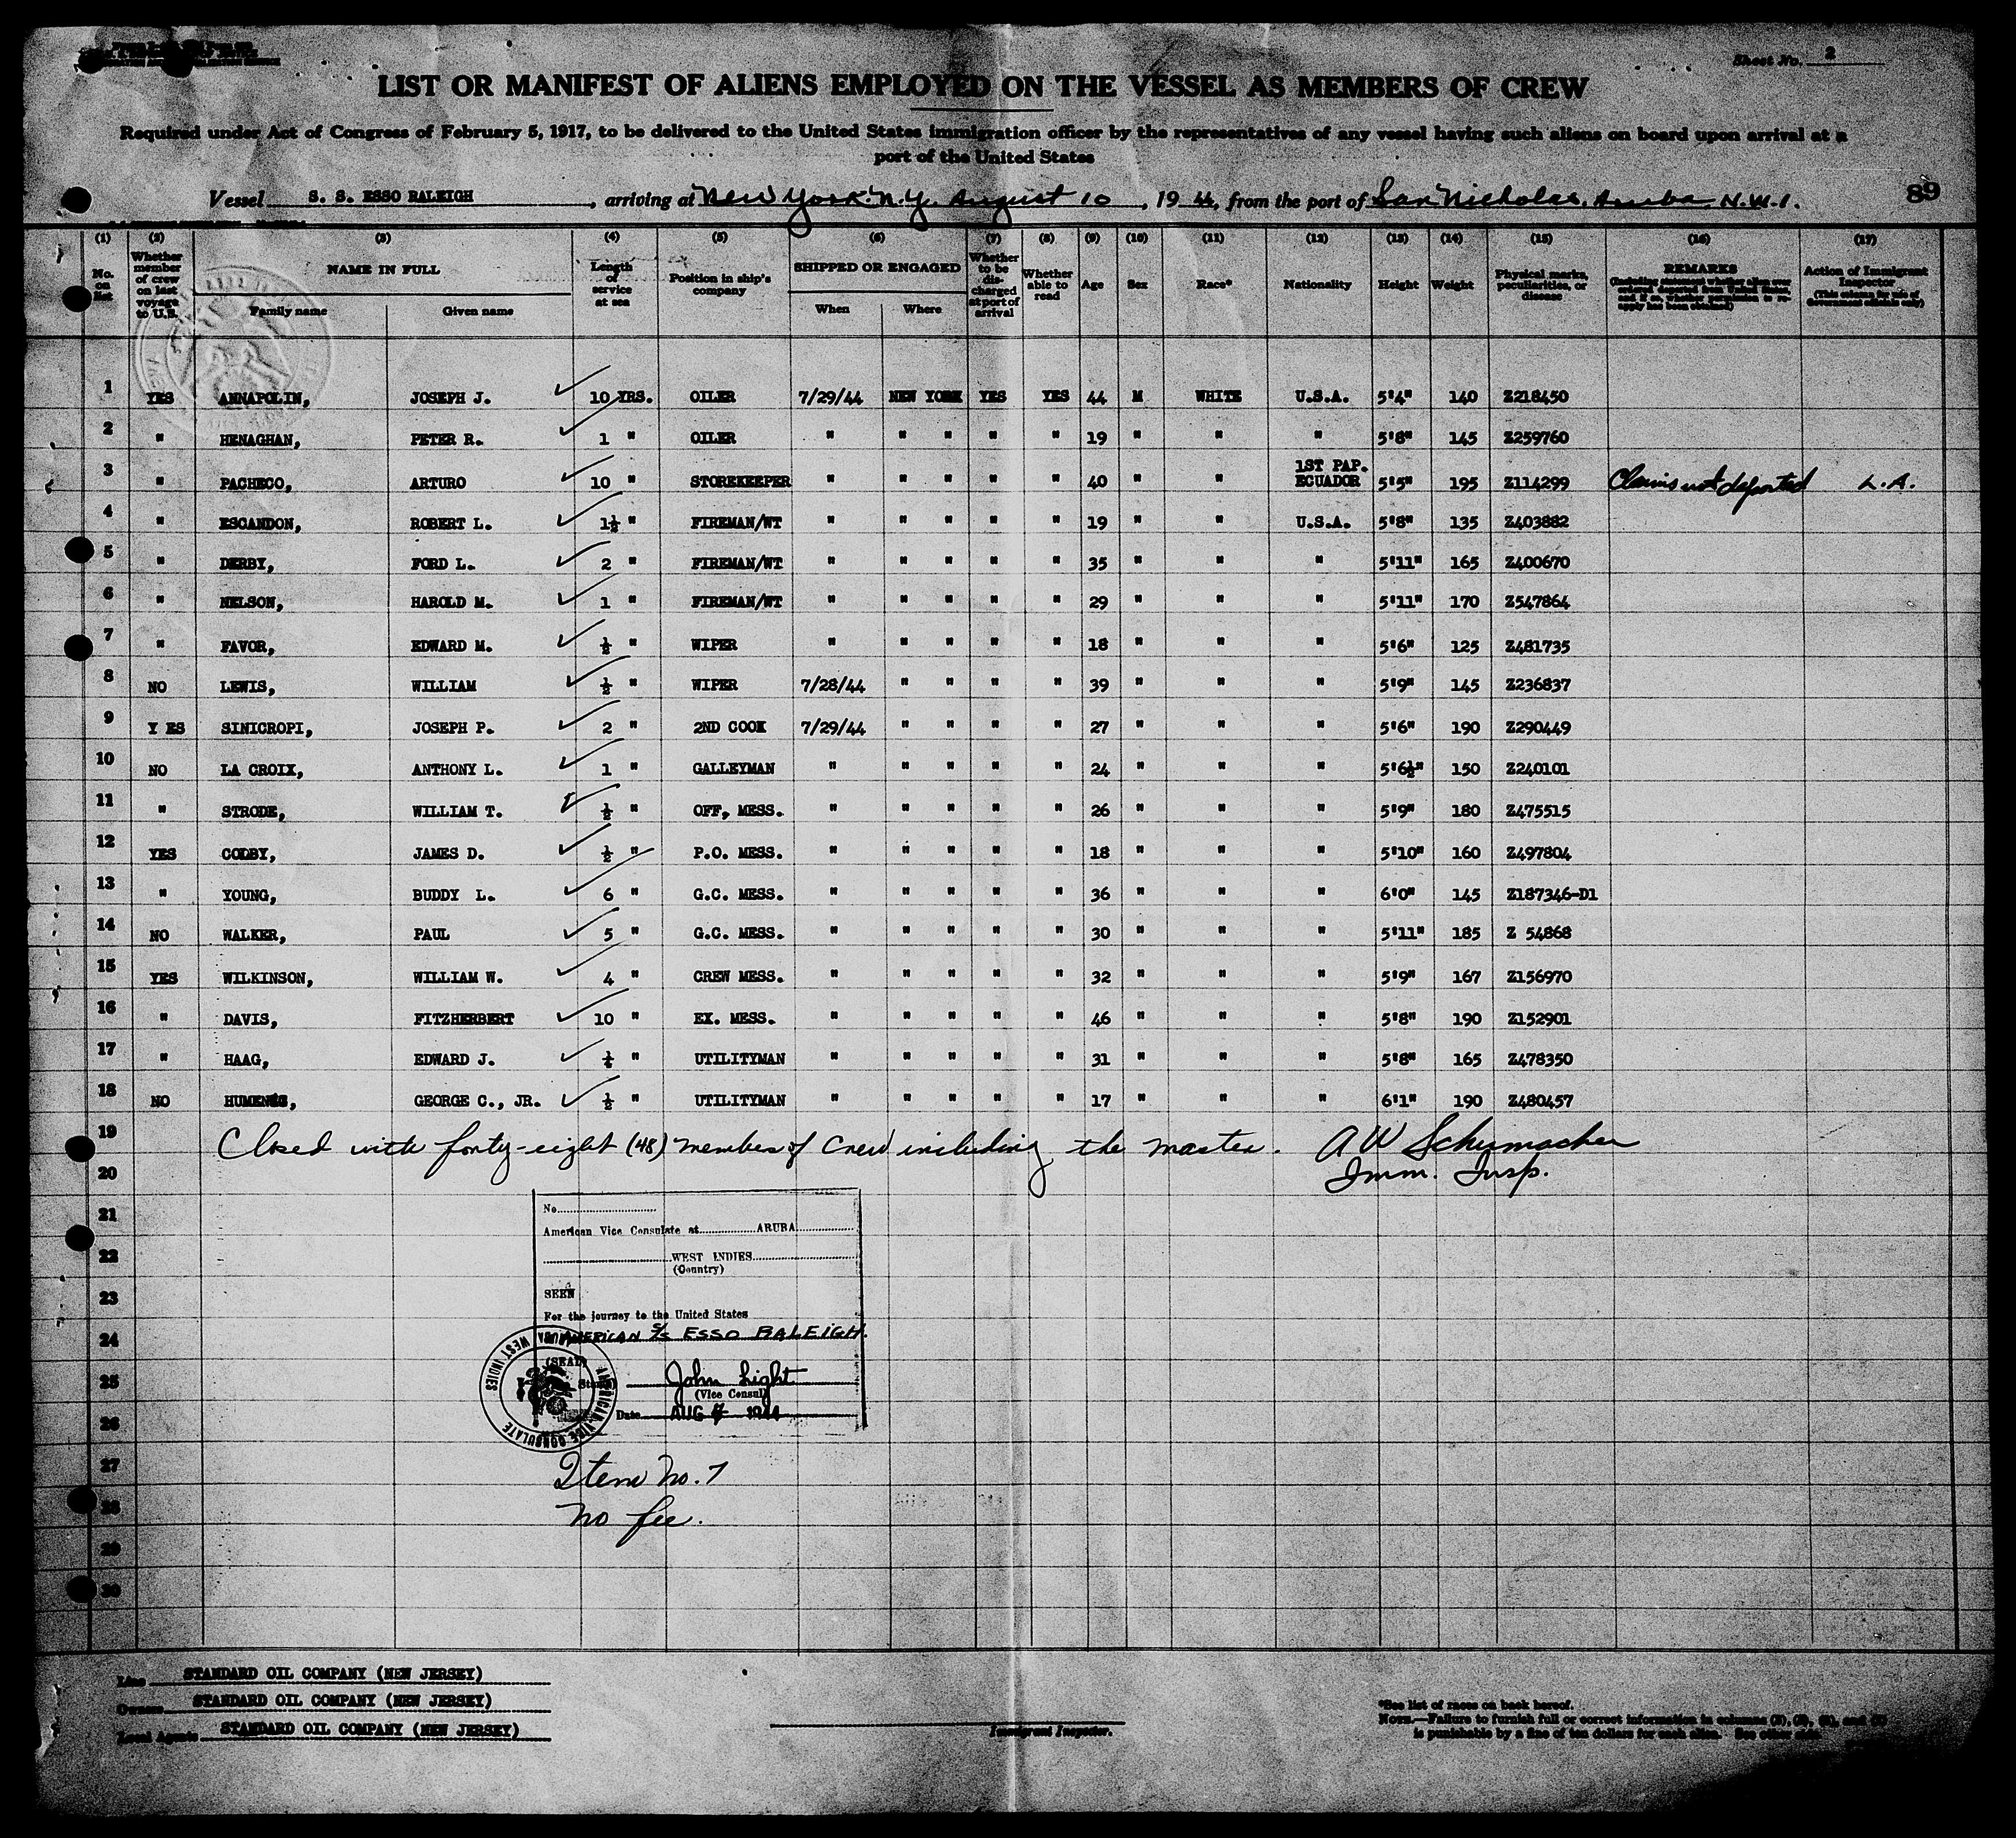 Sheet No. 2
LIST OR MANIFEST OF ALIENS EMPLOYED ON THE VESSEL AS MEMBERS OF CREW
Required under Act of Congress of February 5, 1917, to be delivered to the United States immigration officer by the representatives of any vessel having such aliens on board upon arrival at a
port of the United States
Vessel S. S. ESSO RALEIGH, arriving at New York N.Y. August 10, 1944, from the port of San Nicholas, Aruba N.W.I. 89
(1) (2) (3) (4) (5) (6) (7) (8) (9) (10) (11) (12) (13) (14) (15) (16) (17)
No. on list | Whether member of crew on last voyage to U.S. | NAME IN FULL Family name Given name | Length of service at sea | Position in ship's company | SHIPPED OR ENGAGED When Where | Whether to be discharged at port of arrival | Whether able to read | Age | Sex | Race* | Nationality | Height | Weight | Physical marks, peculiarities, or disease | REMARKS | Action of Immigrant Inspector
1 YES ANNAPOLIN, JOSEPH J. 10 YRS. OILER 7/29/44 NEW YORK YES YES 44 M WHITE U.S.A. 5'4" 140 Z218450
2 " HENAGHAN, PETER R. 1 " OILER " " " " " 19 " " " 5'8" 145 Z259760
3 " PACHECO, ARTURO 10 " STOREKEEPER " " " " " 40 " " 1ST PAP. ECUADOR 5'5" 195 Z114299 Claims not deported L.A.
4 " ESCANDON, ROBERT L. 1½ " FIREMAN/WT " " " " " 19 " " U.S.A. 5'8" 135 Z403882
5 " DERBY, FORD L. 2 " FIREMAN/WT " " " " " 35 " " " 5'11" 165 Z400670
6 " NELSON, HAROLD M. 1 " FIREMAN/WT " " " " " 29 " " " 5'11" 170 Z547864
7 " FAVOR, EDWARD M. ½ " WIPER " " " " " 18 " " " 5'6" 125 Z481735
8 NO LEWIS, WILLIAM ½ " WIPER 7/28/44 " " " " 39 " " " 5'9" 145 Z236837
9 Y ES SINICROPI, JOSEPH P. 2 " 2ND COOK 7/29/44 " " " " 27 " " " 5'6" 190 Z290449
10 NO LA CROIX, ANTHONY L. 1 " GALLEYMAN " " " " " 24 " " " 5'6½" 150 Z240101
11 " STRODE, WILLIAM T. ½ " OFF, MESS. " " " " " 26 " " " 5'9" 180 Z475515
12 YES COLBY, JAMES D. ½ " P.O. MESS. " " " " " 18 " " " 5'10" 160 Z497804
13 " YOUNG, BUDDY L. 6 " G.C. MESS. " " " " " 36 " " " 6'0" 145 Z187346-D1
14 NO WALKER, PAUL 5 " G.C. MESS. " " " " " 30 " " " 5'11" 185 Z 54868
15 YES WILKINSON, WILLIAM W. 4 " CREW MESS. " " " " " 32 " " " 5'9" 167 Z156970
16 " DAVIS, FITZHERBERT 10 " EX. MESS. " " " " " 46 " " " 5'8" 190 Z152901
17 " HAAG, EDWARD J. " UTILITYMAN " " " " " 31 " " " 5'8" 165 Z478350
18 NO GEORGE C., JR. ½ " UTILITYMAN " " " " " 17 " " " 6'1" 190 Z480457
19 Closed with forty-eight (48) members of crew including the master. A W Schumacher
20 Imm. Insp.
21
22
23
24
25
26
27
28
29
30
No.
American Vice Consulate at ARUBA
WEST INDIES
(Country)
SEEN
For the journey to the United States
AMERICAN S/S ESSO RALEIGH.
(SEAL)
John Light
(Vice Consul)
Date AUG 7 1944
AMERICAN VICE CONSULATE
ARUBA WEST INDIES
Item No. 7
No fee.
Line STANDARD OIL COMPANY (NEW JERSEY)
Owners STANDARD OIL COMPANY (NEW JERSEY)
Local Agents STANDARD OIL COMPANY (NEW JERSEY)
Immigrant Inspector.
*See list of races on back hereof.
NOTE.—Failure to furnish full or correct information in columns
is punishable by a fine of ten dollars for each alien. See other side